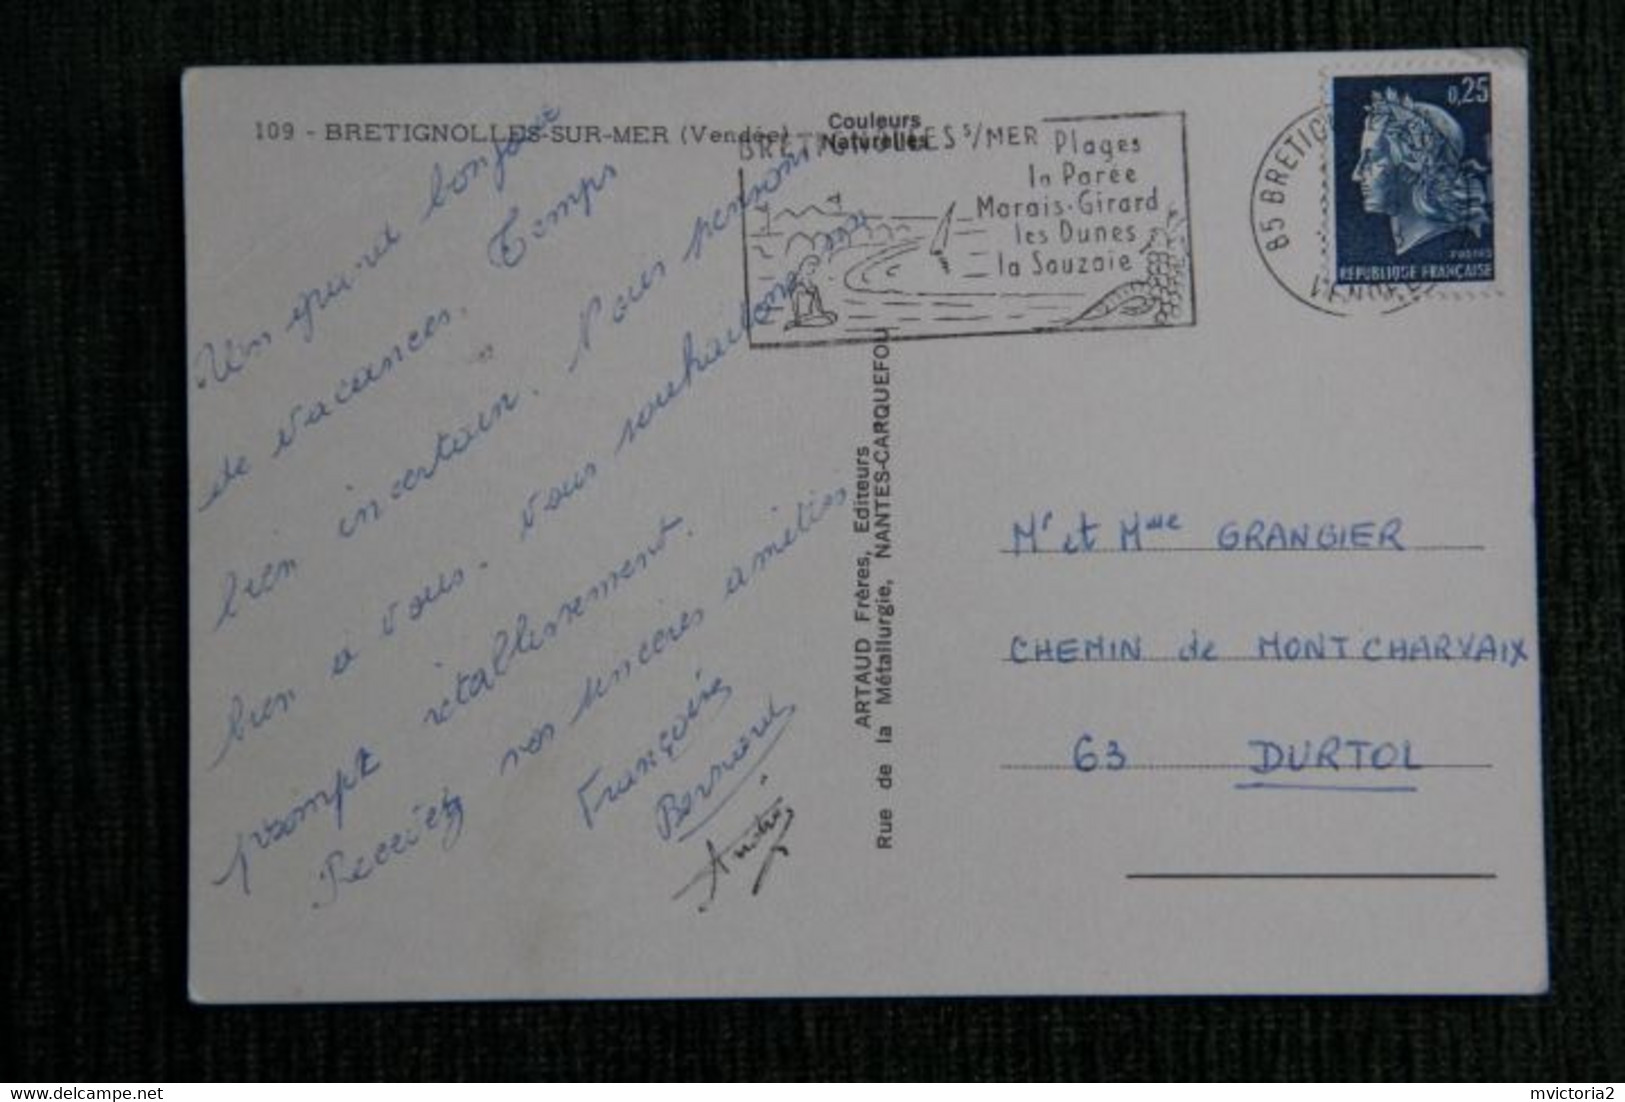 109 - BRETIGNOLLES-SUR-MER (Vendée)
Couleurs
Naturelles
BRETIGNOLLES S/MER
Plages
la Parée
Marais-Girard
les Dunes
la Sauzaie
85 BRETIG
VENDEE
0,25
POSTES
REPUBLIQUE FRANÇAISE
Un grand bonjour
de vacances. Temps
bien incertain. Nous pensons
bien à vous. Vous souhaitons un
prompt rétablissement.
Recevez nos sincères amitiés
Françoise
Bernard
André
ARTAUD Frères, Editeurs
Rue de la Métallurgie, NANTES-CARQUEFOU
Mr et Mme GRANGIER
CHEMIN de MONTCHARVAIX
63 DURTOL
mvictoria2